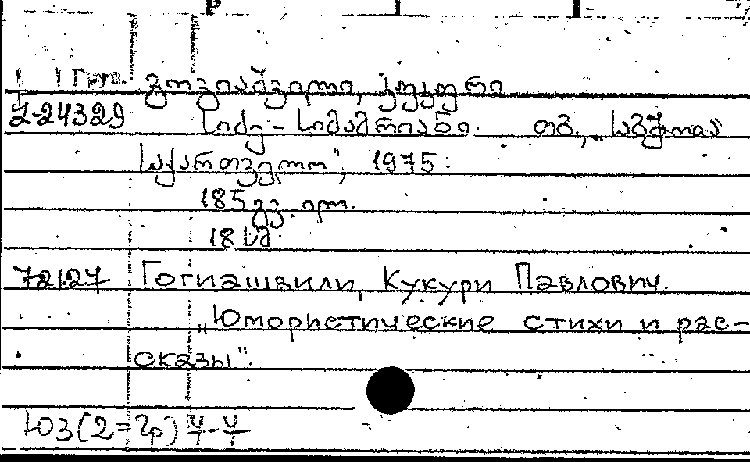 გოგიაშვილი, კუკური
2-24329 სიძე-სიმამრიანი. თბ., „საბჭოთა
საქართველო", 1975.
185 გვ. ილ.
18 სმ
72127 Гогиашвили, Кукури Павлович.
„Юмористические стихи и рас-
сказы".